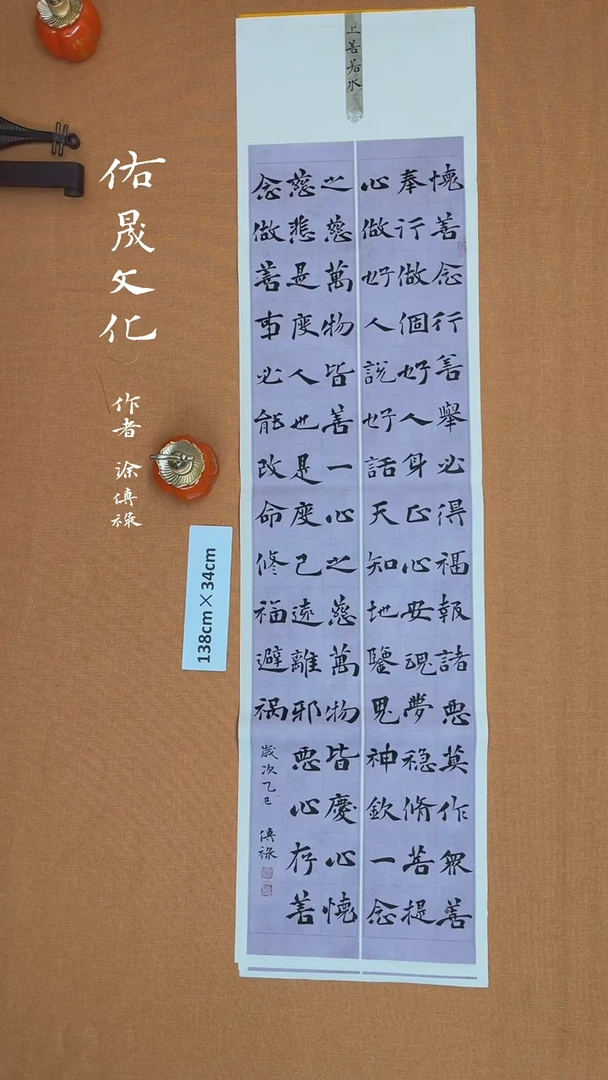 上善若水
懷善念行善舉必得福報諸惡莫作眾善
奉行做個好人身正心安魂夢穩脩菩提
心做好人說好話天知地鑒鬼神欽一念
之慈萬物皆善一心之慈萬物皆慶心懷
慈悲是度人也是度己遠離邪惡心存善
念做善事必能改命修福避祸
歲次乙巳 傅祿
佑晟文化
作者 涂傅祿
138cm×34cm